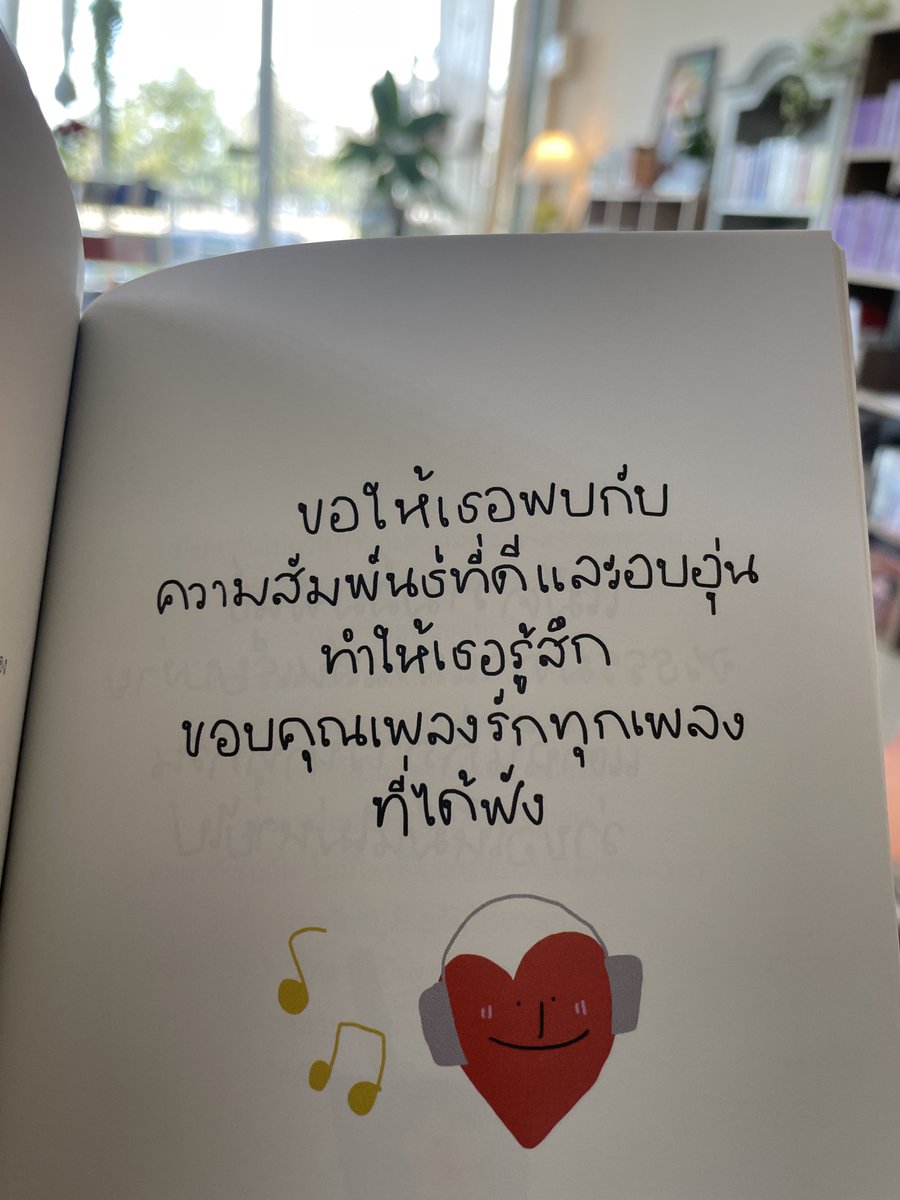 ขอให้เธอพบกับ
ความสัมพันธ์ที่ดีและอบอุ่น
ทำให้เธอรู้สึก
ขอบคุณเพลงรักทุกเพลง
ที่ได้ฟัง